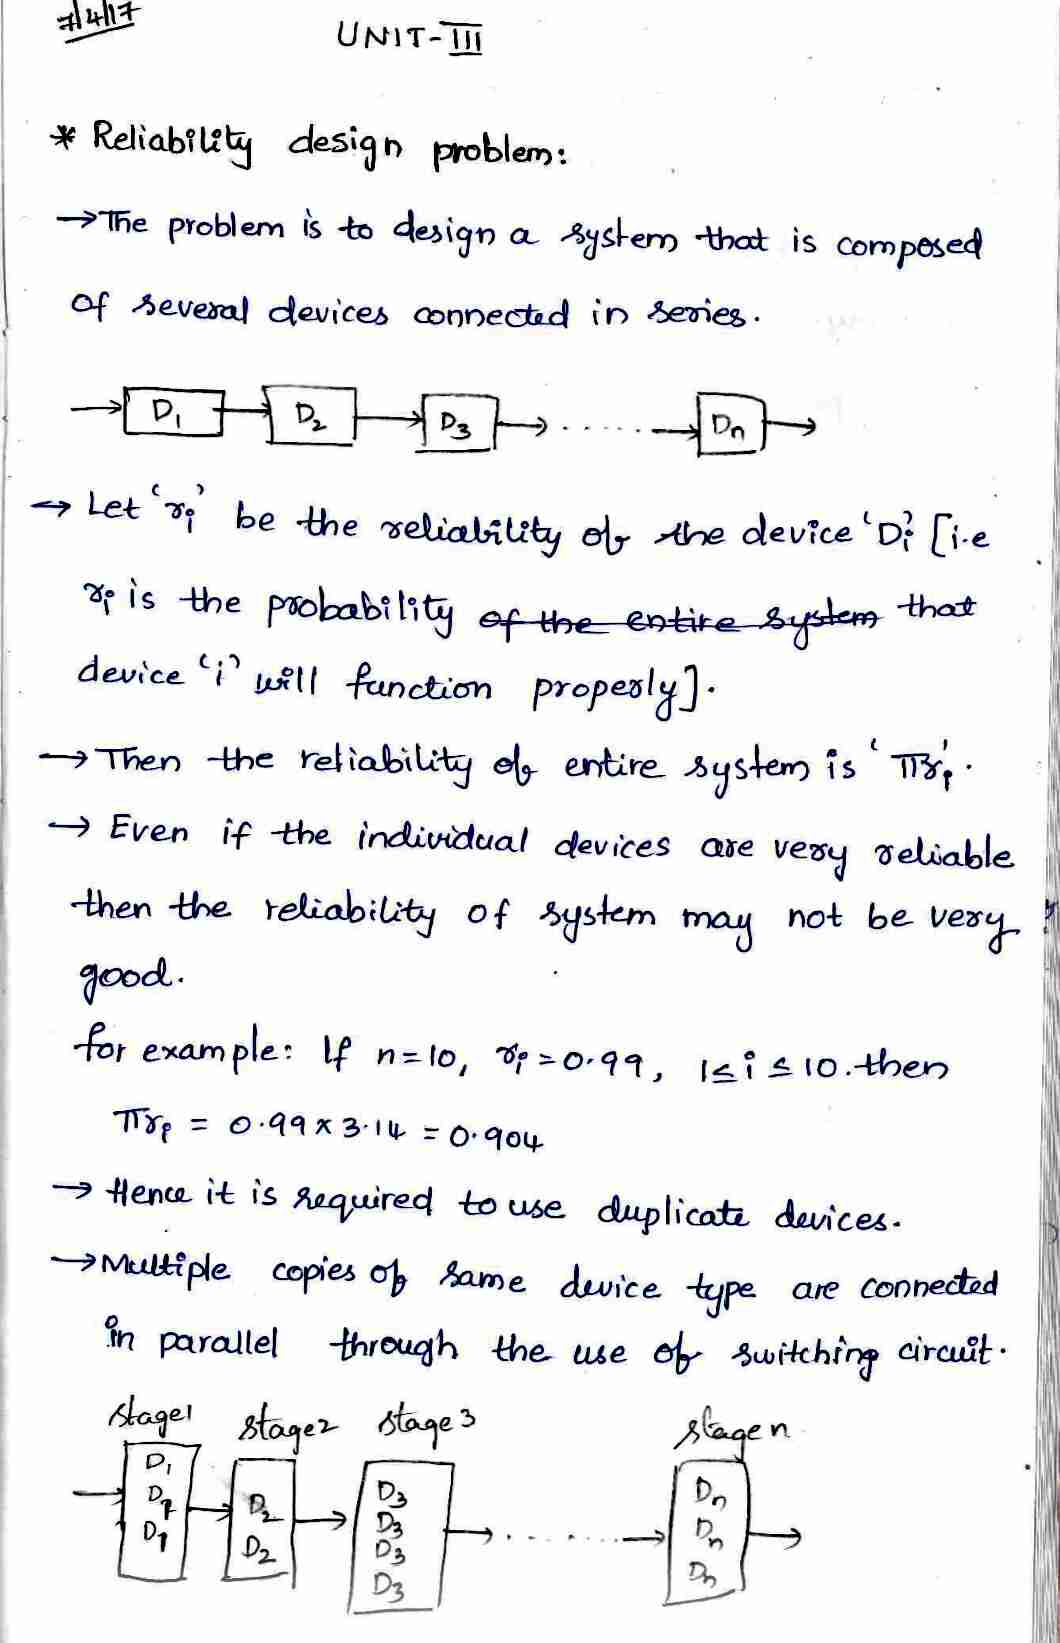 7/4/17
UNIT-III
* Reliability design problem:
→The problem is to design a system that is composed
of several devices connected in series.
D1 D2 D3 ...... Dn
→ Let 'ri' be the reliability of the device 'Di' [i.e
ri is the probability of the entire system that
device 'i' will function properly].
→ Then the reliability of entire system is 'πri'.
→ Even if the individual devices are very reliable
then the reliability of system may not be very
good.
for example: If n=10, ri=0.99, 1≤i≤10.then
πri = 0.99×3.14 = 0.904
→ Hence it is required to use duplicate devices.
→Multiple copies of same device type are connected
in parallel through the use of switching circuit.
stage1 stage2 stage3 stage n
D1 D1 D1
D2 D2
D3 D3 D3 D3
......
Dn Dn Dn